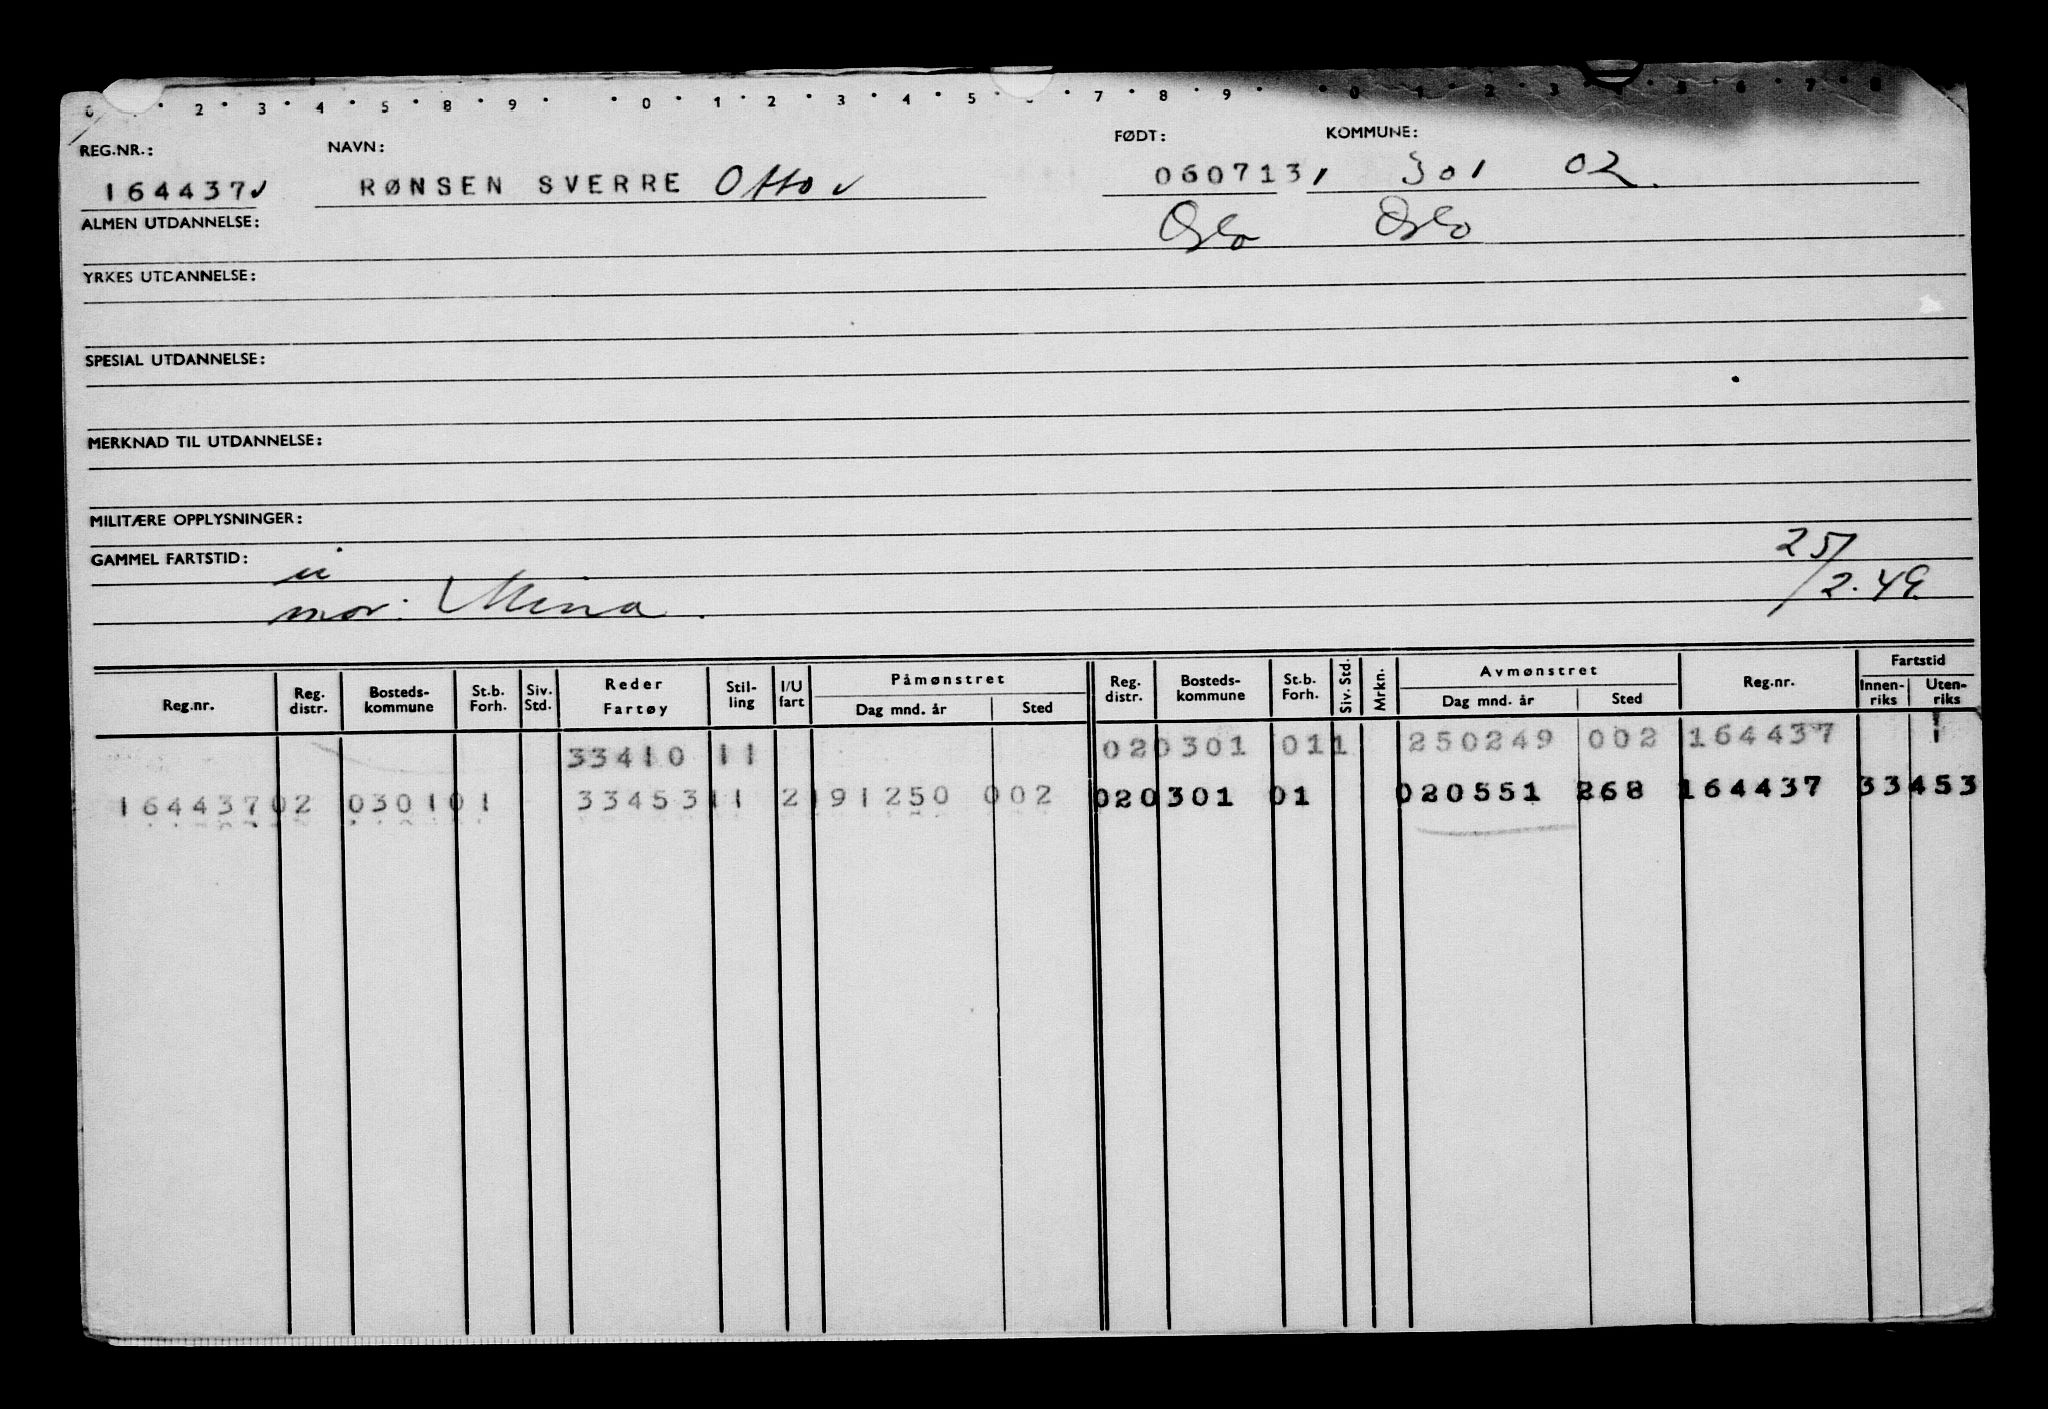 2 · 3 · 4 · 5 · 8 · 9 · · 0 · 1 · 2 · 3 · 4 · 5 · 7 · 8 · 9 · · 0 · 1 · 2 · 3 · 5 · 6 · 7 · 8
REG.NR.: NAVN: FØDT: KOMMUNE:
164437 RØNSEN SVERRE Otto 060713 301 02
ALMEN UTDANNELSE: Oslo Oslo
YRKES UTDANNELSE:
SPESIAL UTDANNELSE:
MERKNAD TIL UTDANNELSE:
MILITÆRE OPPLYSNINGER:
GAMMEL FARTSTID: 25/2.49
mor: Mina.
Reg.nr. Reg. distr. Bosteds-kommune St.b. Forh. Siv. Std. Reder Fartøy Stil-ling I/U fart Påmønstret Dag mnd. år Sted Reg. distr. Bosteds-kommune St.b. Forh. Siv. Std. Mrkn. Avmønstret Dag mnd. år Sted Reg.nr. Fartstid Innen-riks Uten-riks
33410 11 020301 011 250249 002 164437 1
16443702 030101 3345311 2191250 002 020301 01 020551 268 164437 33453